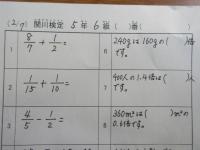 (2/7) 関川検定 5年6級 ( )番( )
1 8/7 + 1/2 =
6 240gは160gの( )倍です。
2 1/15 + 1/10 =
7 400人の1.4倍は( )人です。
3 4/5 - 1/2 =
8 360m²は( )m²の0.6倍です。